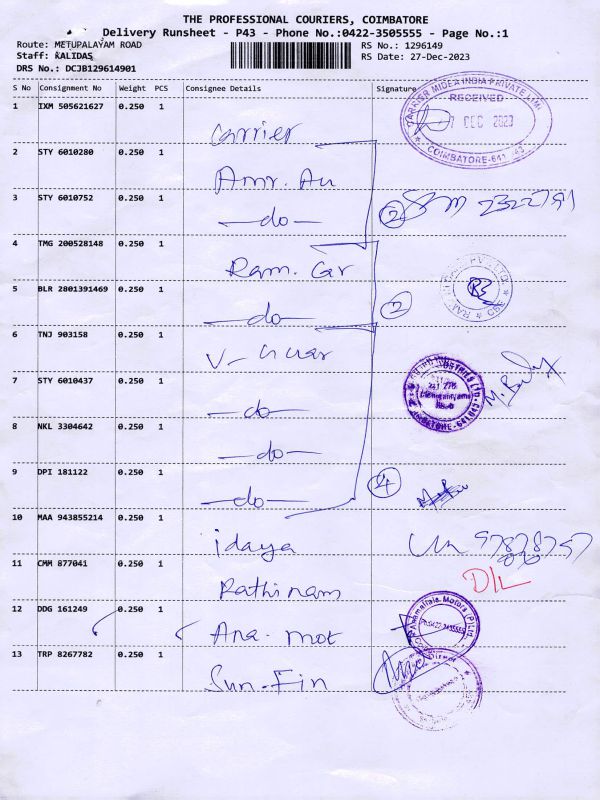 THE PROFESSIONAL COURIERS, COIMBATORE
Delivery Runsheet - P43 - Phone No.:0422-3505555 - Page No.:1
Route: METUPALAYAM ROAD RS No.: 1296149
Staff: KALIDAS RS Date: 27-Dec-2023
DRS No.: DCJB129614901
S No Consignment No Weight PCS Consignee Details Signature
CARRIER MIDEA INDIA PRIVATE LIMI
RECEIVED
7 DEC 2023
COIMBATORE-641
1 IXM 505621627 0.250 1 Carrier
2 STY 6010280 0.250 1 Amr. Au
3 STY 6010752 0.250 1 —do— 2
4 TMG 200528148 0.250 1 Ram. Car
5 BLR 2801391469 0.250 1 —do— 2
6 TNJ 903158 0.250 1
7 STY 6010437 0.250 1 —do—
8 NKL 3304642 0.250 1 —do—
9 DPI 181122 0.250 1 —do— 4
10 MAA 943855214 0.250 1 idaya
11 CMM 877041 0.250 1 Rathinam D/L
12 DDG 161249 0.250 1 Ana. mot
Annamallais Motors (P) Ltd
13 TRP 8267782 0.250 1 Sun-Fin